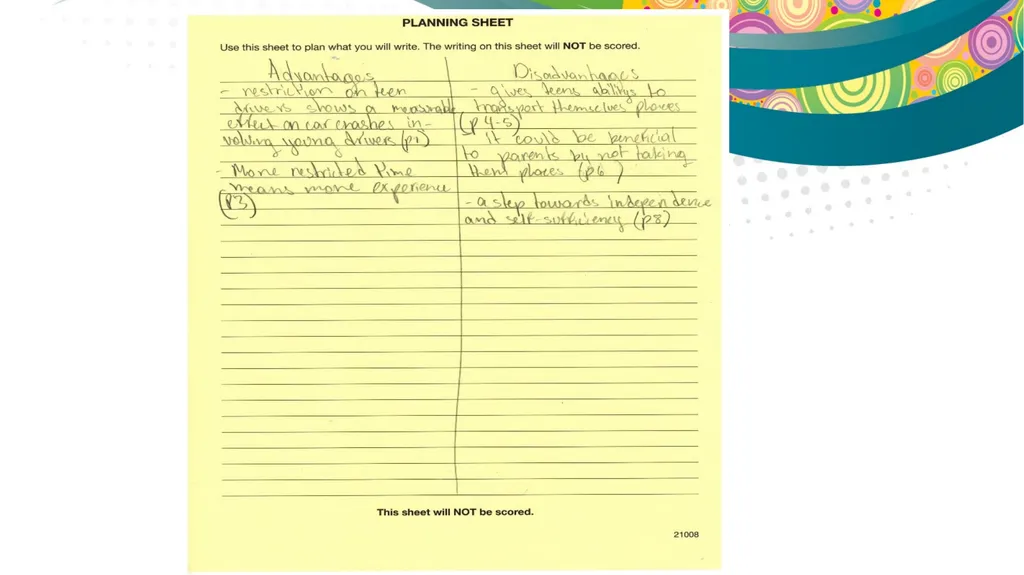 PLANNING SHEET
Use this sheet to plan what you will write. The writing on this sheet will NOT be scored.
Advantages
- restriction on teen
drivers shows a measurable
effect on car crashes in-
volving young drivers (p1)
- More restricted time
means more experience
(P3)
Disadvantages
- gives teens abilitys to
transport themselves places
(p 4-5)
- It could be beneficial
to parents by not taking
them places (p6)
- a step towards independence
and self-sufficiency (p8)
This sheet will NOT be scored.
21008